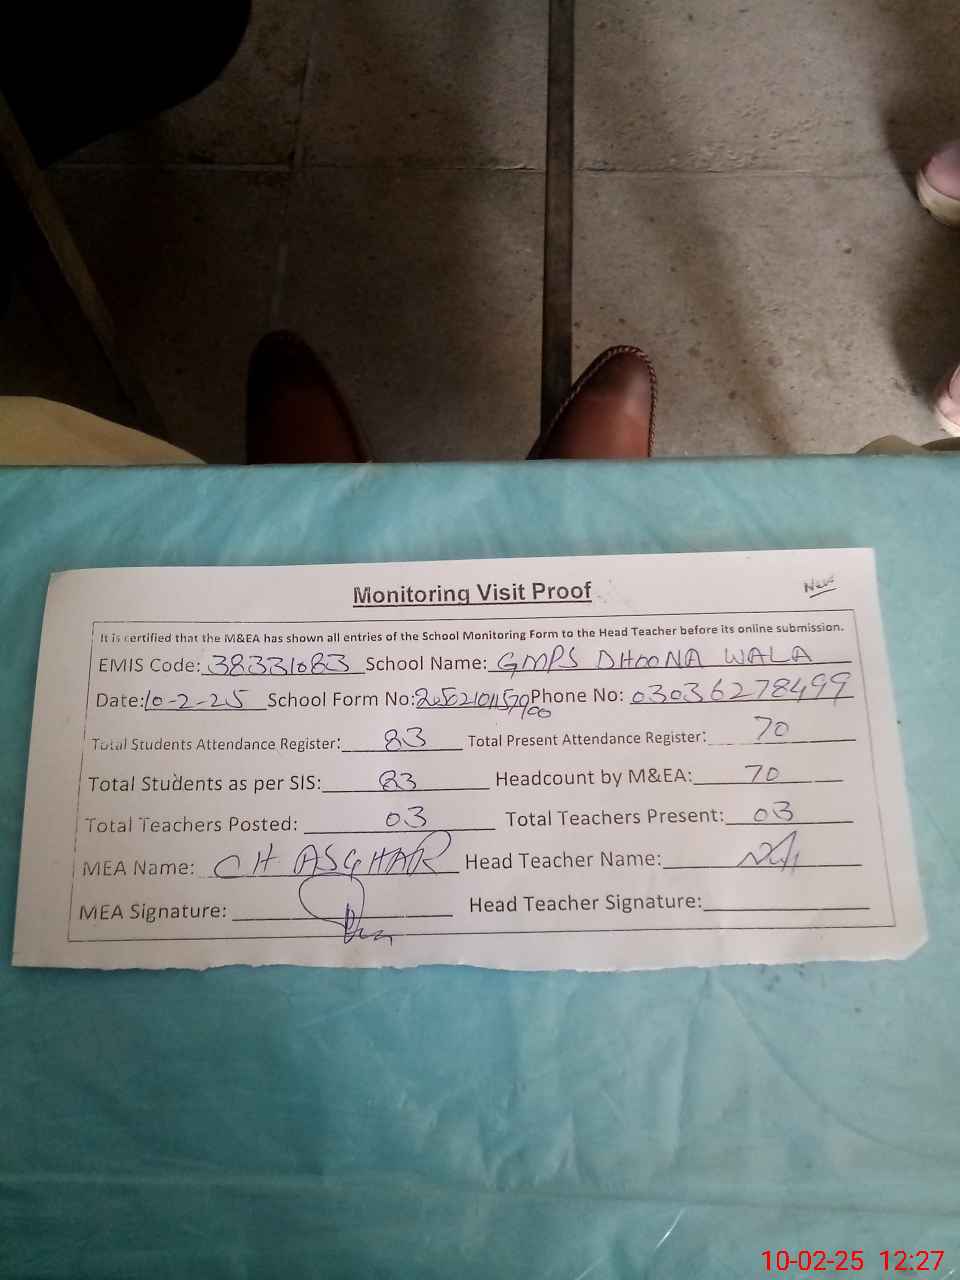 Monitoring Visit Proof
New
It is certified that the M&EA has shown all entries of the School Monitoring Form to the Head Teacher before its online submission.
EMIS Code: 38331083 School Name: GMPS DHOONA WALA
Date: 10-2-25 School Form No: Phone No: 03036278499
Total Students Attendance Register: 83 Total Present Attendance Register: 70
Total Students as per SIS: 83 Headcount by M&EA: 70
Total Teachers Posted: 03 Total Teachers Present: 03
MEA Name: CH ASGHAR Head Teacher Name:
MEA Signature: Head Teacher Signature:
10-02-25 12:27